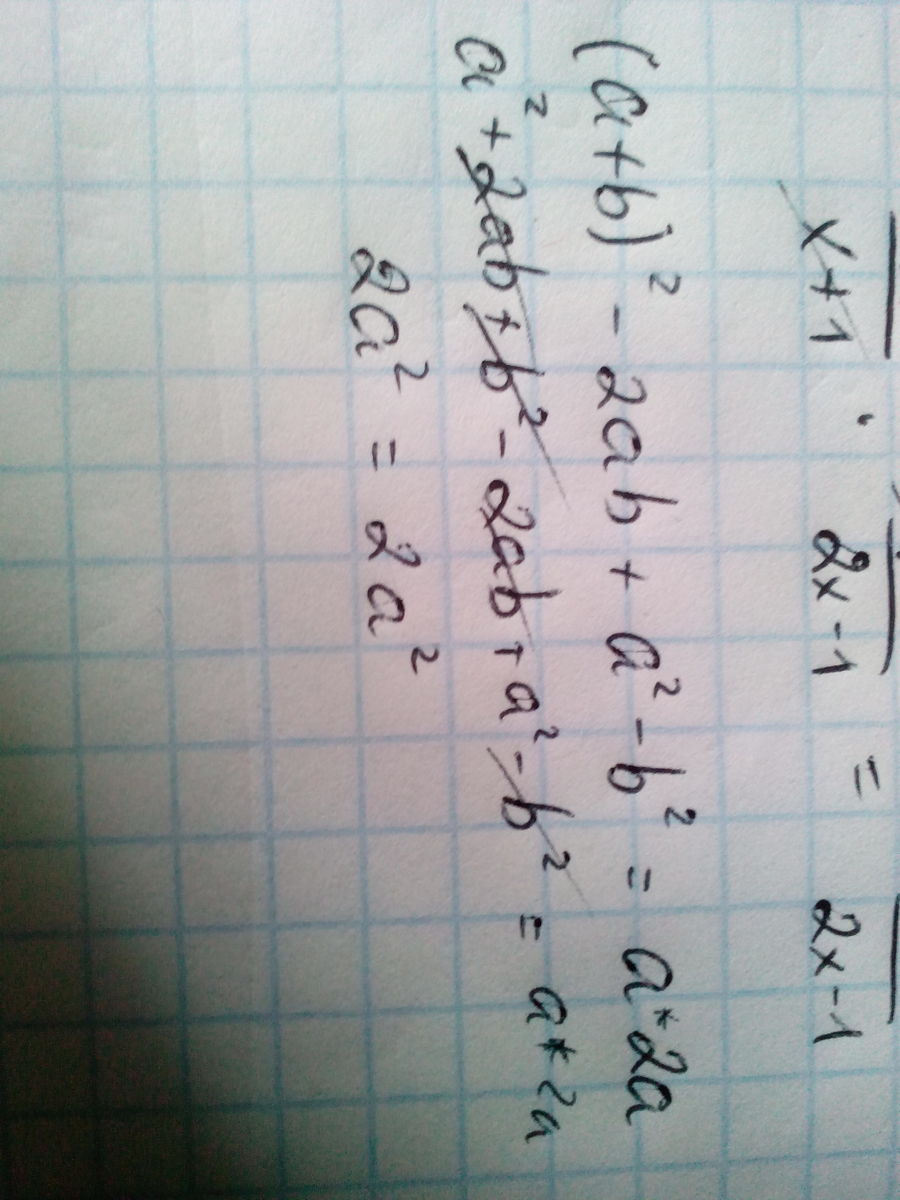 x+1 · 2x-1 = 2x-1
(a+b)² - 2ab + a² - b² = a*2a
a² + 2ab + b² - 2ab + a² - b² = a*2a
2a² = 2a²